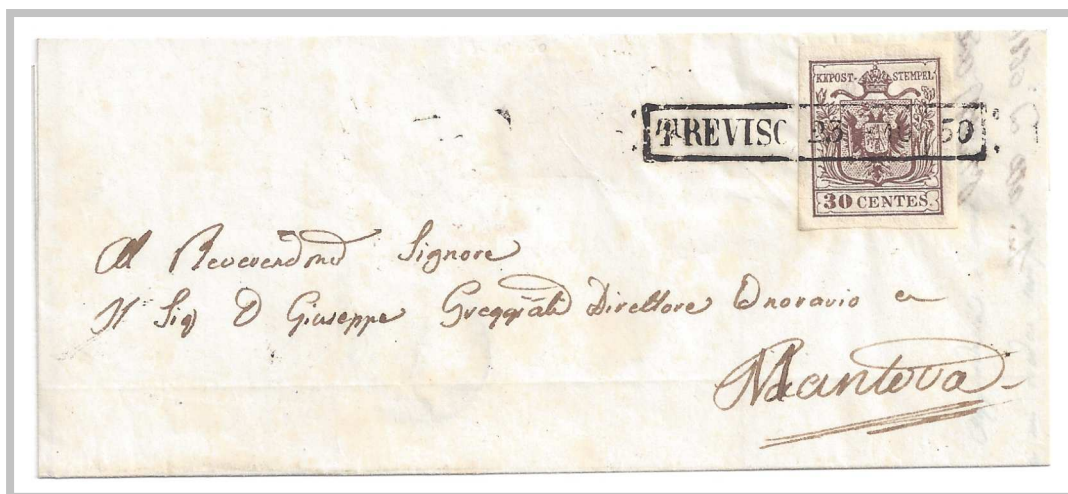 KKPOST-STEMPEL
TREVISO 50
30 CENTES.
Al Reverendmo Signore
Il Sig D Giuseppe Greggiati Direttore Onorario a
Mantova